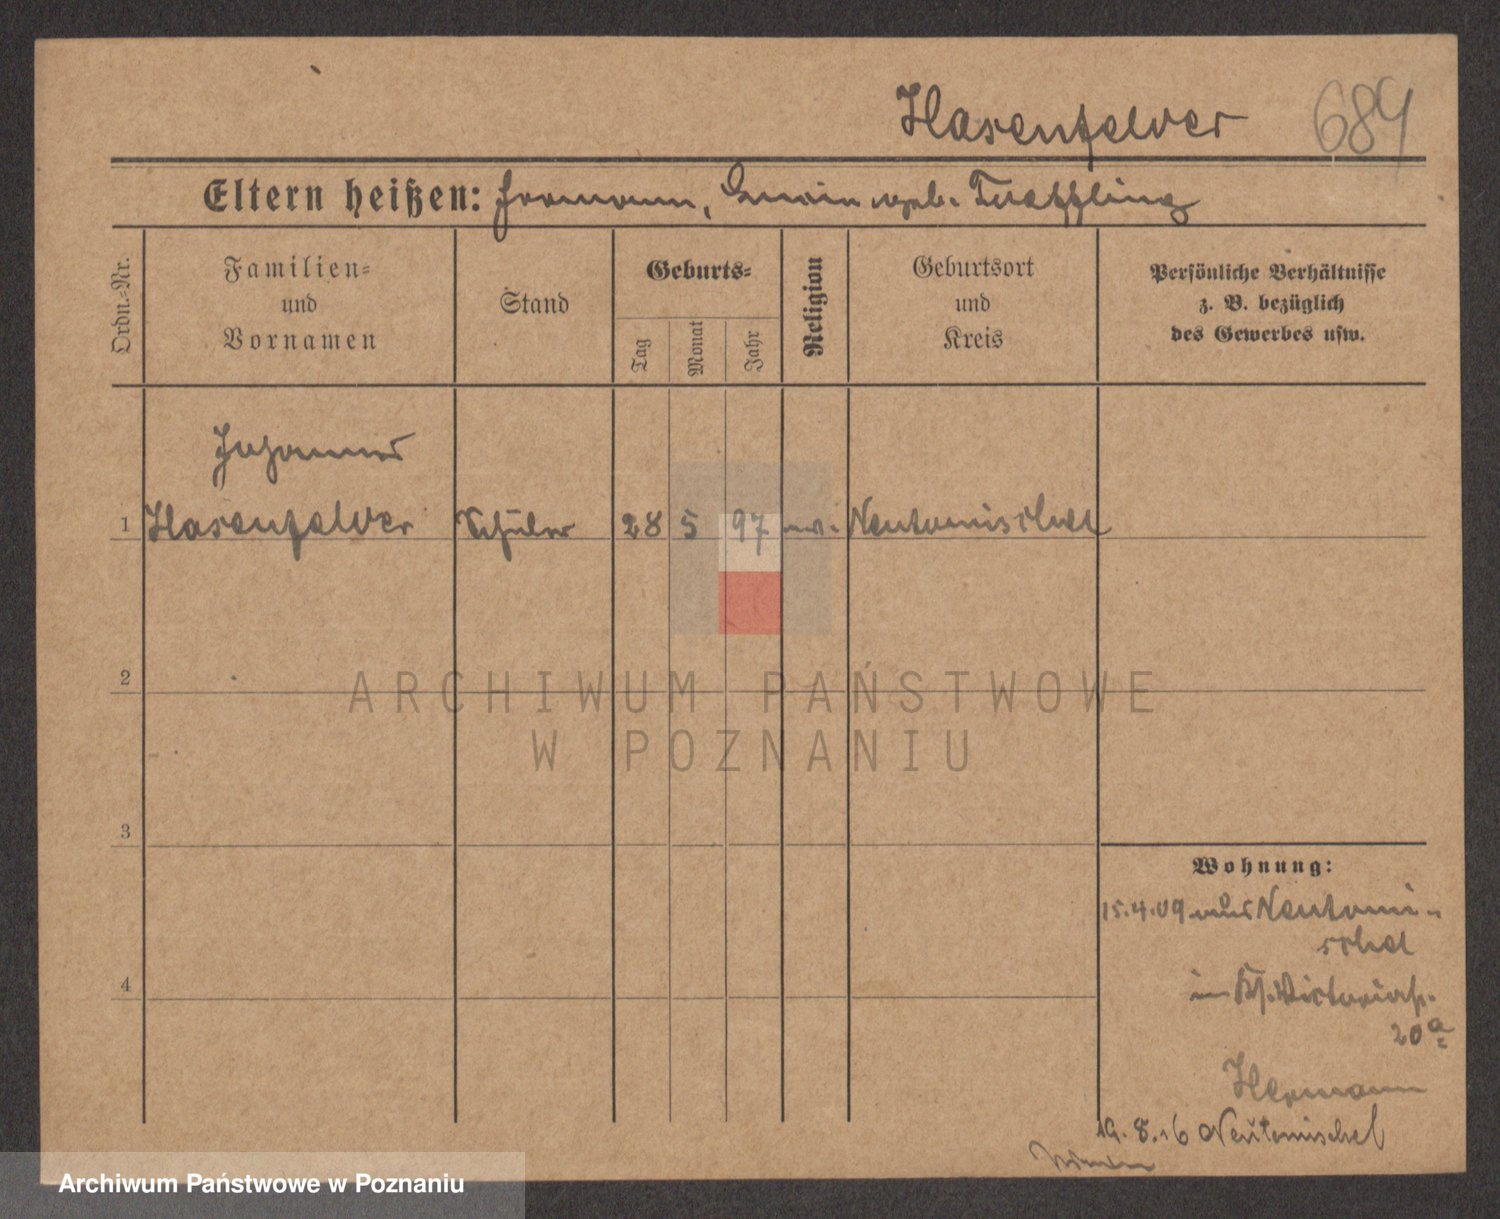 Hasenfelder 684
Eltern heißen: Hermann, geb.
Ordn.-Nr.
Familien-
und
Vornamen
Stand
Geburts-
Tag
Monat
Jahr
Religion
Geburtsort
und
Kreis
Persönliche Verhältnisse
z. B. bezüglich
des Gewerbes usw.
Johannes
1 Hasenfelder Schüler 28 5 97 ev. Neutomischel
2
ARCHIWUM PAŃSTWOWE
W POZNANIU
3
4
Wohnung:
15.4.09 aus Neutomi-
schel
20a
Hermann
19. 8. 16 Neutomischel
Archiwum Państwowe w Poznaniu